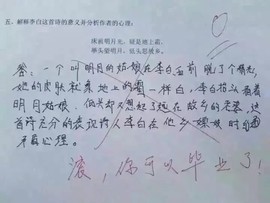 五、解释李白这首诗的意义并分析作者的心理:
床前明月光,疑是地上霜。
举头望明月,低头思故乡。
答:一个叫明月的姑娘在李白面前脱了个精光,
她的皮肤就象地上的霜一样白,李白抬头看看
明月姑娘,低头却又想起了远在故乡的老婆,这
首诗充分的表现诗人李白在他乡嫖娼时的
矛盾心理。
滚,你可以毕业了!